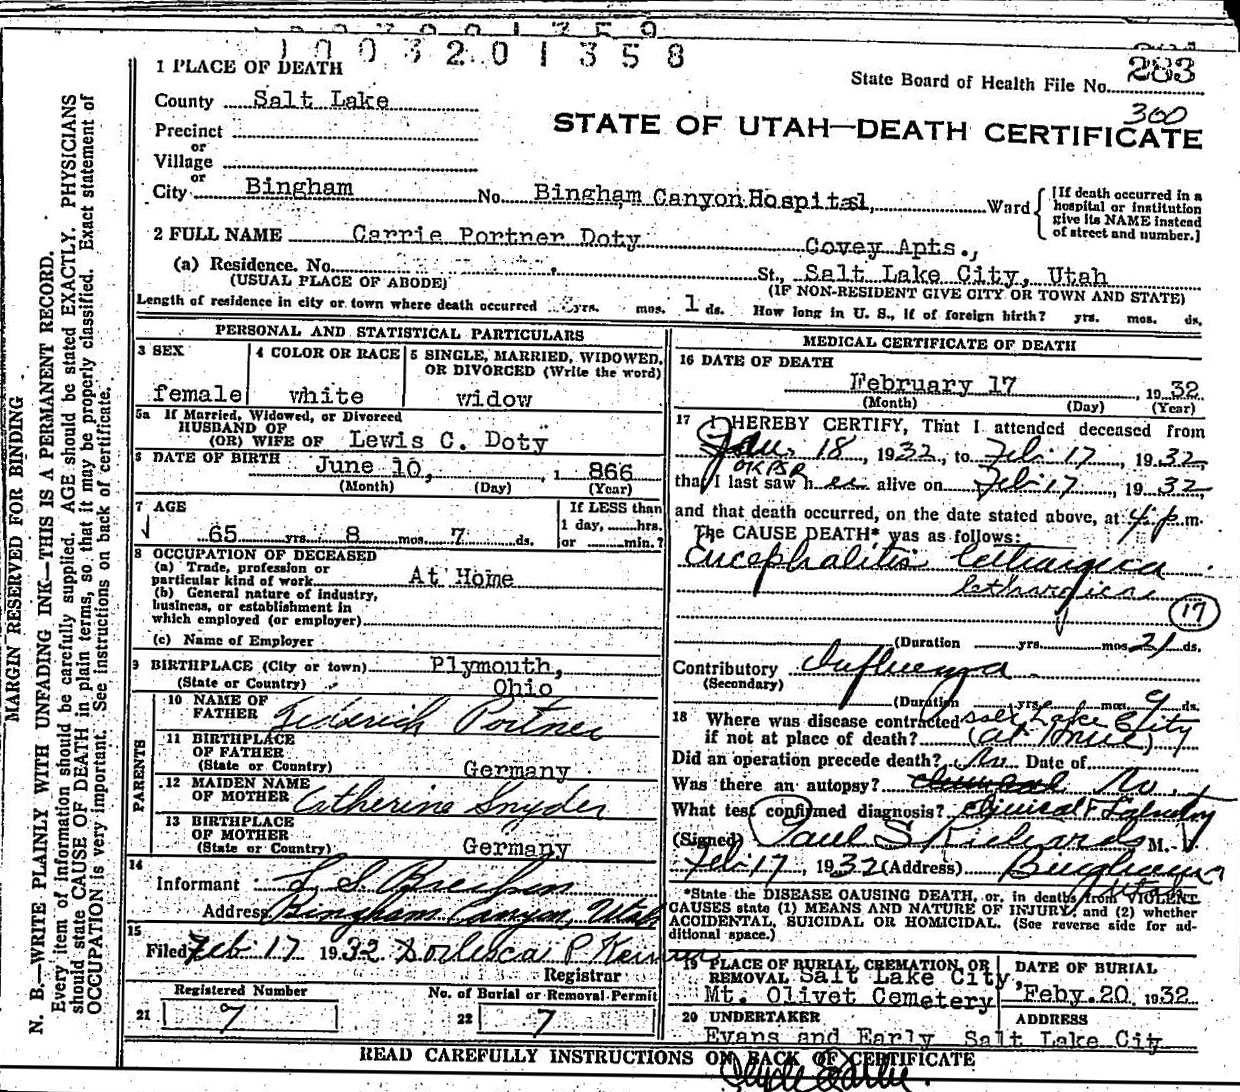 1003201358
1 PLACE OF DEATH
State Board of Health File No. 283
County Salt Lake
300
STATE OF UTAH—DEATH CERTIFICATE
Precinct
or
Village
or
City Bingham No. Bingham Canyon Hospital, Ward
[If death occurred in a hospital or institution give its NAME instead of street and number.]
2 FULL NAME Carrie Portner Doty
Covey Apts.,
(a) Residence. No. St., Salt Lake City, Utah
(USUAL PLACE OF ABODE) (IF NON-RESIDENT GIVE CITY OR TOWN AND STATE)
Length of residence in city or town where death occurred yrs. mos. 1 ds. How long in U. S., if of foreign birth? yrs. mos. ds.
PERSONAL AND STATISTICAL PARTICULARS
3 SEX 4 COLOR OR RACE 5 SINGLE, MARRIED, WIDOWED, OR DIVORCED (Write the word)
female white widow
5a If Married, Widowed, or Divorced
HUSBAND OF
(OR) WIFE OF Lewis C. Doty
6 DATE OF BIRTH June 10, 1866
(Month) (Day) (Year)
7 AGE
If LESS than
1 day, hrs.
65 yrs. 8 mos. 7 ds. or min.?
8 OCCUPATION OF DECEASED
(a) Trade, profession or
particular kind of work At Home
(b) General nature of industry,
business, or establishment in
which employed (or employer)
(c) Name of Employer
9 BIRTHPLACE (City or town) Plymouth,
(State or Country) Ohio
PARENTS
10 NAME OF
FATHER Fiderich Portner
11 BIRTHPLACE
OF FATHER
(State or Country) Germany
12 MAIDEN NAME
OF MOTHER Catherine Snyder
13 BIRTHPLACE
OF MOTHER
(State or Country) Germany
14
Informant
Address Bingham Canyon, Utah
15
Filed Feb 17 1932
Registrar
Registered Number No. of Burial or Removal Permit
21 7 22 7
MEDICAL CERTIFICATE OF DEATH
16 DATE OF DEATH
February 17, 1932
(Month) (Day) (Year)
17 I HEREBY CERTIFY, That I attended deceased from
Jan. 18, 1932, to Feb. 17, 1932,
OK PSR
that I last saw her alive on Feb 17, 1932,
and that death occurred, on the date stated above, at 4 p.m.
The CAUSE DEATH* was as follows:
Encephalitis Lethargica
lethargica
17
(Duration yrs. mos. 21 ds.
Contributory Influenza
(Secondary)
(Duration yrs. mos. 9 ds.
18 Where was disease contracted Salt Lake City
if not at place of death? (at home)
Did an operation precede death? No Date of
Was there an autopsy? clinical No.
What test confirmed diagnosis? Clinical &
(Signed) Paul S Richards M. D.
Feb 17, 1932 (Address) Bingham
Utah
*State the DISEASE CAUSING DEATH, or, in deaths from VIOLENT
CAUSES state (1) MEANS AND NATURE OF INJURY, and (2) whether
ACCIDENTAL, SUICIDAL OR HOMICIDAL. (See reverse side for ad-
ditional space.)
19 PLACE OF BURIAL CREMATION, OR
REMOVAL Salt Lake City,
Mt. Olivet Cemetery
DATE OF BURIAL
Feby. 20, 1932
20 UNDERTAKER ADDRESS
Evans and Early Salt Lake City
READ CAREFULLY INSTRUCTIONS ON BACK OF CERTIFICATE
MARGIN RESERVED FOR BINDING
N. B.—WRITE PLAINLY WITH UNFADING INK—THIS IS A PERMANENT RECORD.
Every item of information should be carefully supplied. AGE should be stated EXACTLY. PHYSICIANS
should state CAUSE OF DEATH in plain terms, so that it may be properly classified. Exact statement of
OCCUPATION is very important. See instructions on back of certificate.